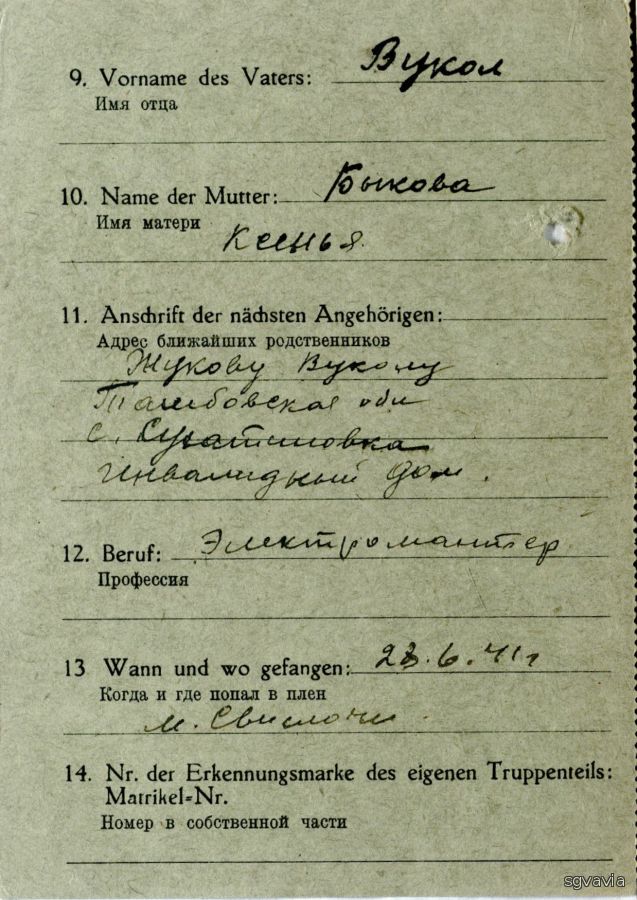 9. Vorname des Vaters: Вукол
Имя отца
10. Name der Mutter: Быкова
Имя матери Ксенья
11. Anschrift der nächsten Angehörigen:
Адрес ближайших родственников
Жукову Вуколу
Тамбовская обл
с.
инвалидный дом.
12. Beruf: Электромантер
Профессия
13 Wann und wo gefangen: 28.6.41г
Когда и где попал в плен
м. Свислочи.
14. Nr. der Erkennungsmarke des eigenen Truppenteils:
Matrikel-Nr.
Номер в собственной части
sgvavia